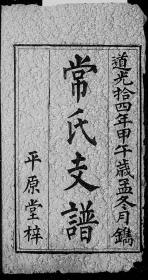 道光拾四年甲午歲孟冬月鐫
常氏支譜
平原堂梓